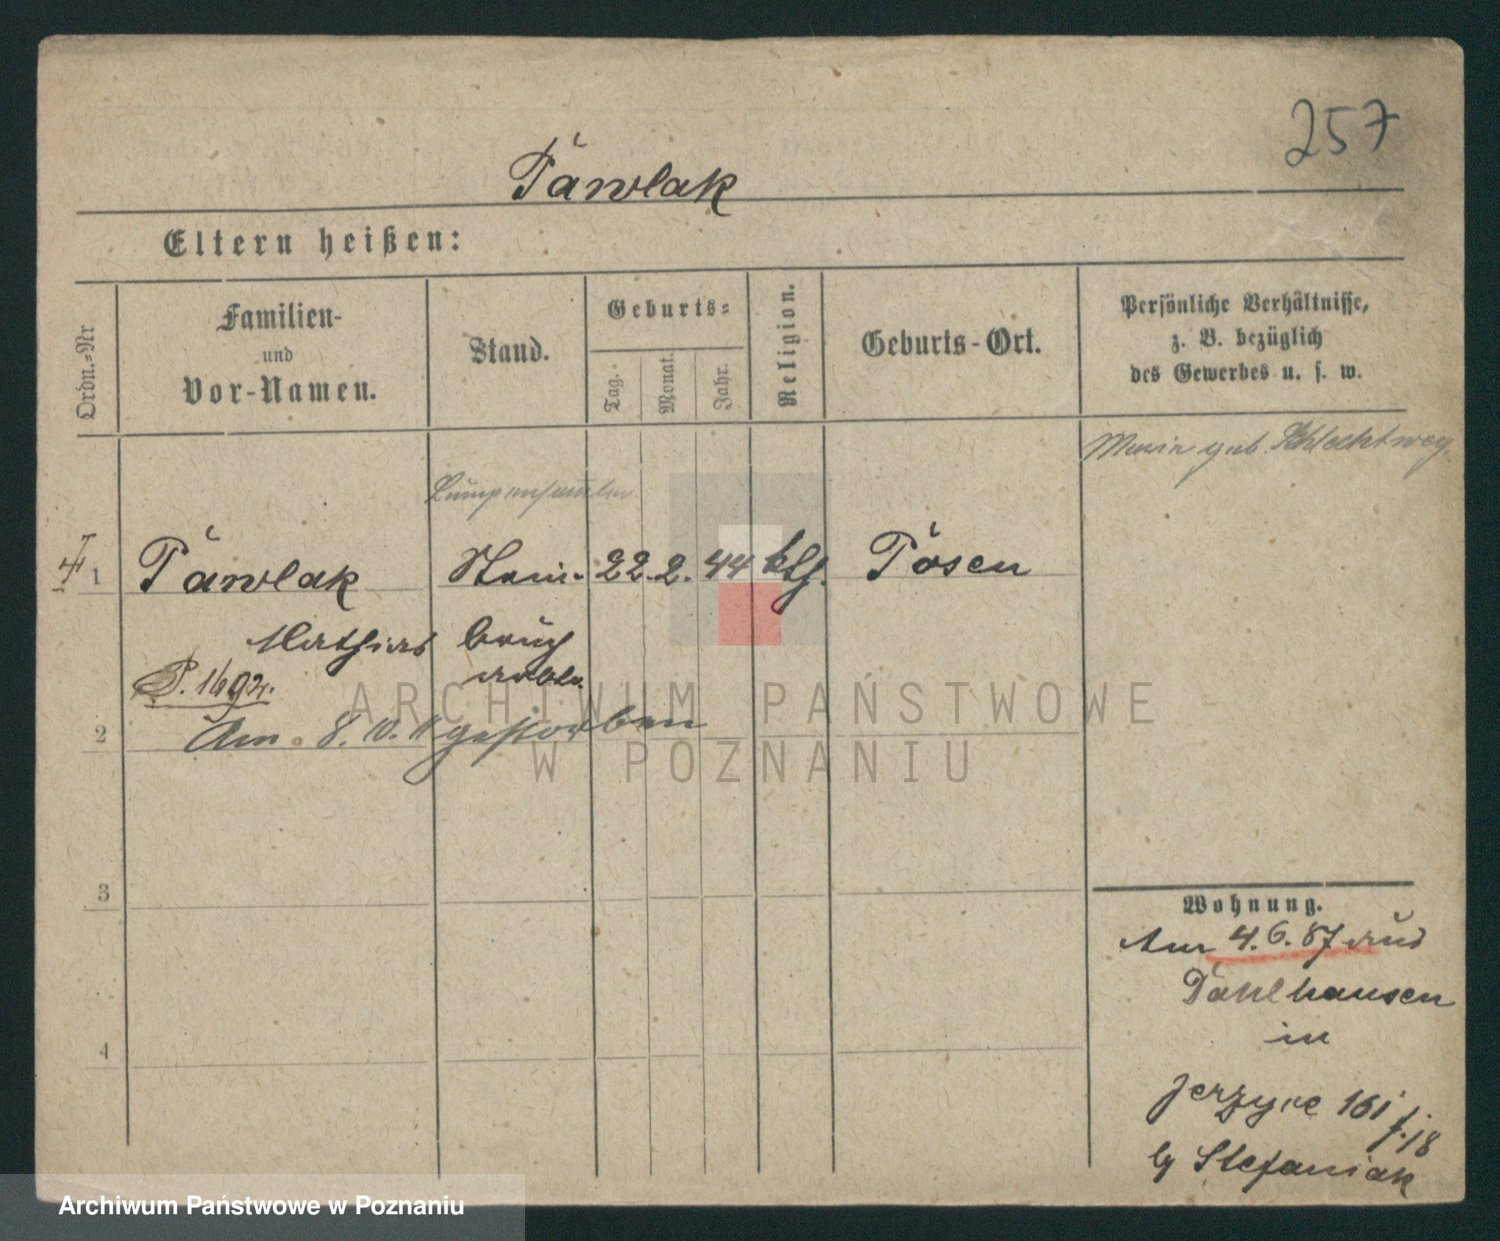 257
Pawlak
Eltern heißen:
Ordn.=Nr
Familien-
und
Vor-Namen.
Stand.
Geburts=
Tag.
Monat.
Jahr.
Religion.
Geburts-Ort.
Persönliche Verhältnisse,
z. B. bezüglich
des Gewerbes u. s. w.
Marie geb. Schlachtweg.
Lumpensammler
1 Pawlak Stein- 22. 2. 44 kth. Posen
Mathias bruch
arbtr.
P. 1692.
2 Am 8. 10. 11 gestorben
3
4
Wohnung.
Am 4. 6. 87 aus
Dahlhausen
in
Jerzyce 161 j. 18
by Stefaniak
ARCHIWUM PAŃSTWOWE
W POZNANIU
Archiwum Państwowe w Poznaniu